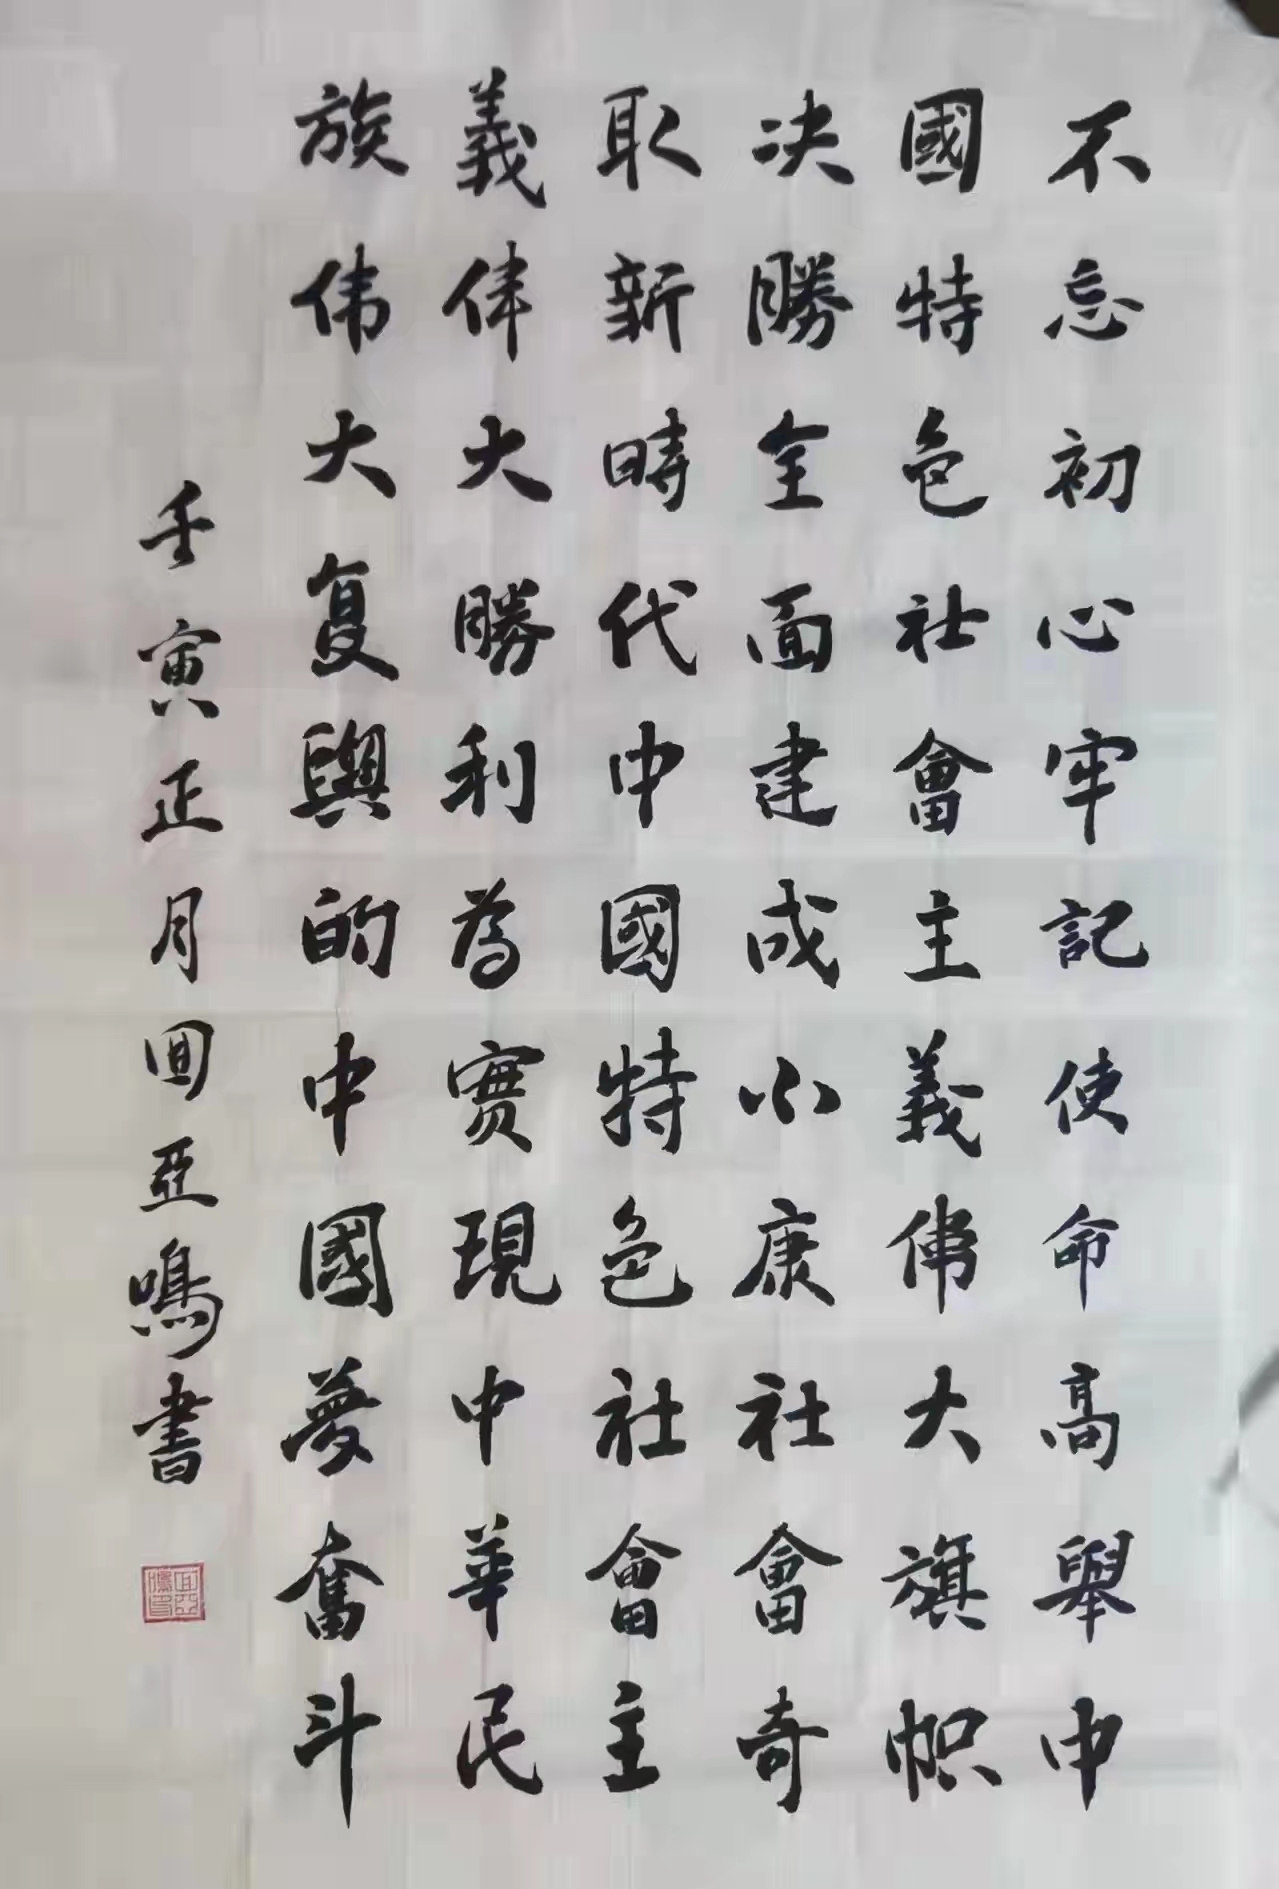 不忘初心牢記使命高舉中
國特色社會主義偉大旗帜
决勝全面建成小康社會奇
取新時代中國特色社會主
義偉大勝利為实現中华民
族伟大复興的中國夢奮斗
壬寅正月囬亞鳴書